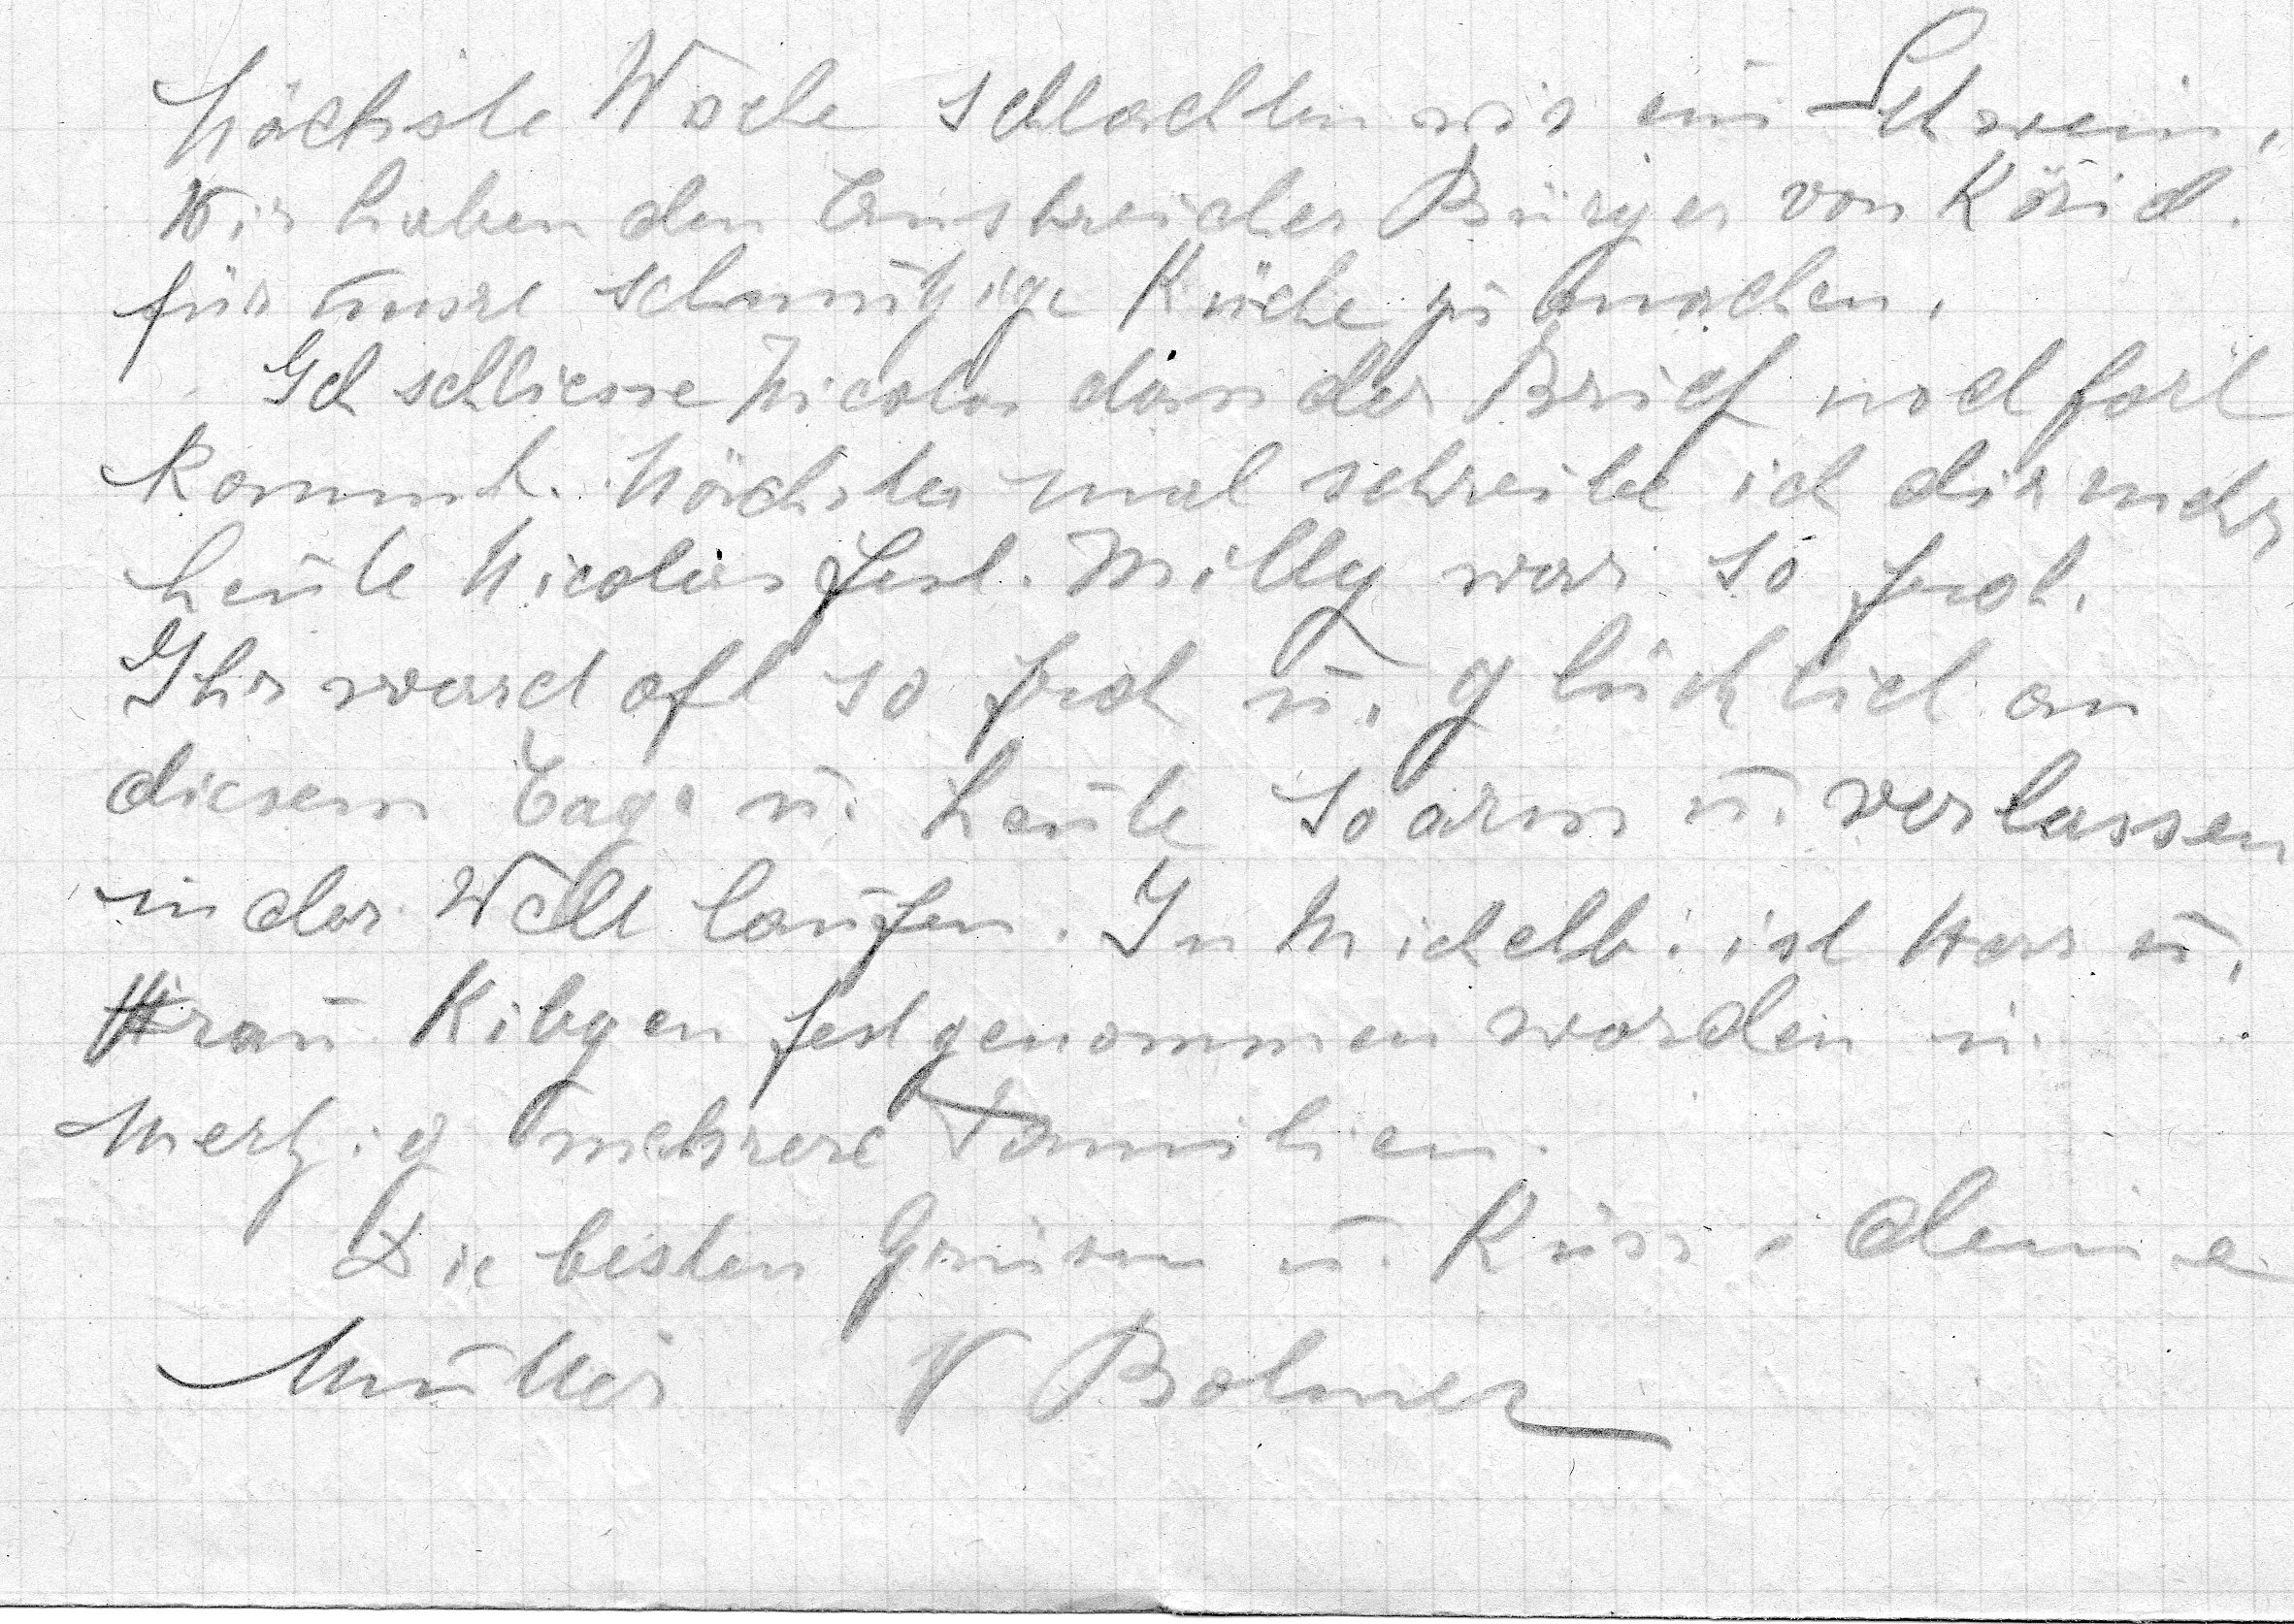 Nächste Woche schlachten wir ein Schwein,
Wir haben den Anstreicher Bürger von Körich.
für unsre schmutzige Küche zu machen.
Ich schliesse Nicolas dan der Brief noch fort
kommt. Nächstes mal schreibe ich dir mehr
heute Nicolas fest. Milly war so froh.
Ihr ward oft so froh u. glücklich an
diesem Tage u. heute so arm u. verlassen
in der Welt laufen. In Michelb. ist Herr u.
Frau Kibgen festgenommen worden u.
Mertzig mehrere Familien.
Die besten Grüsse u. Küsse deine
Mutter V Bolmer